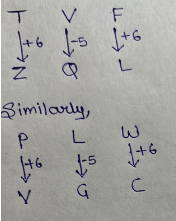 T V F
↓+6 ↓-5 ↓+6
Z Q L
Similarly,
P L W
↓+6 ↓-5 ↓+6
V G C